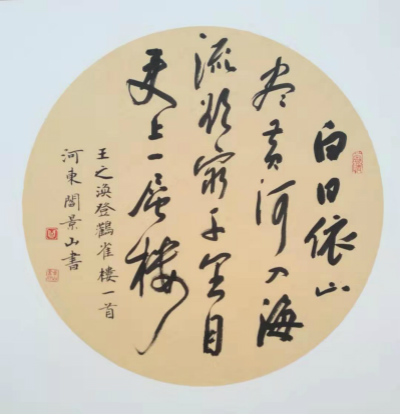 白日依山
尽黄河入海
流欲穷千里目
更上一层楼
王之涣登鹳雀楼一首
河东阎景山书